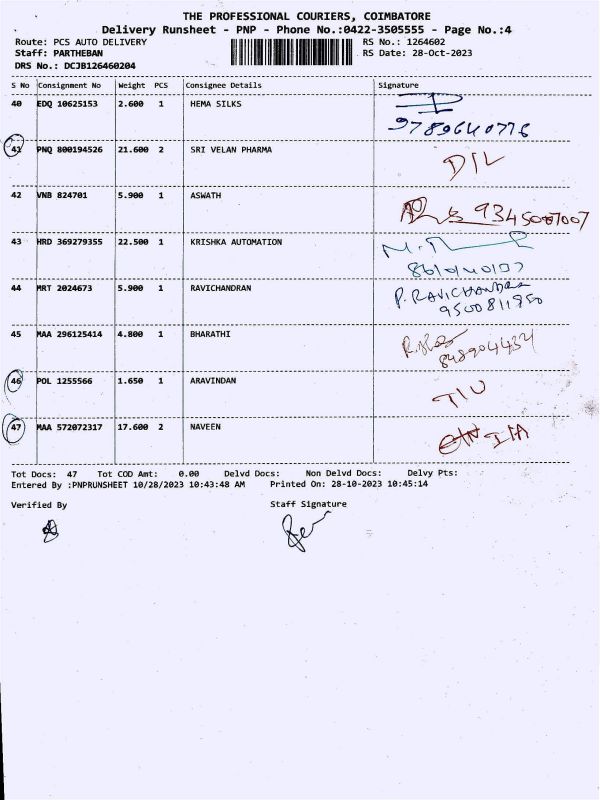 THE PROFESSIONAL COURIERS, COIMBATORE
Delivery Runsheet - PNP - Phone No.:0422-3505555 - Page No.:4
Route: PCS AUTO DELIVERY RS No.: 1264602
Staff: PARTHEBAN RS Date: 28-Oct-2023
DRS No.: DCJB126460204
S No Consignment No Weight PCS Consignee Details Signature
40 EDQ 10625153 2.600 1 HEMA SILKS
9789640776
41 PNQ 800194526 21.600 2 SRI VELAN PHARMA D/L
42 VNB 824701 5.900 1 ASWATH
43 HRD 369279355 22.500 1 KRISHKA AUTOMATION
44 MRT 2024673 5.900 1 RAVICHANDRAN P. RAVICHANDRA
9500811950
45 MAA 296125414 4.800 1 BHARATHI
8489044434
46 POL 1255566 1.650 1 ARAVINDAN
47 MAA 572072317 17.600 2 NAVEEN
Tot Docs: 47 Tot COD Amt: 0.00 Delvd Docs: Non Delvd Docs: Delvy Pts:
Entered By :PNPRUNSHEET 10/28/2023 10:43:48 AM Printed On: 28-10-2023 10:45:14
Verified By Staff Signature